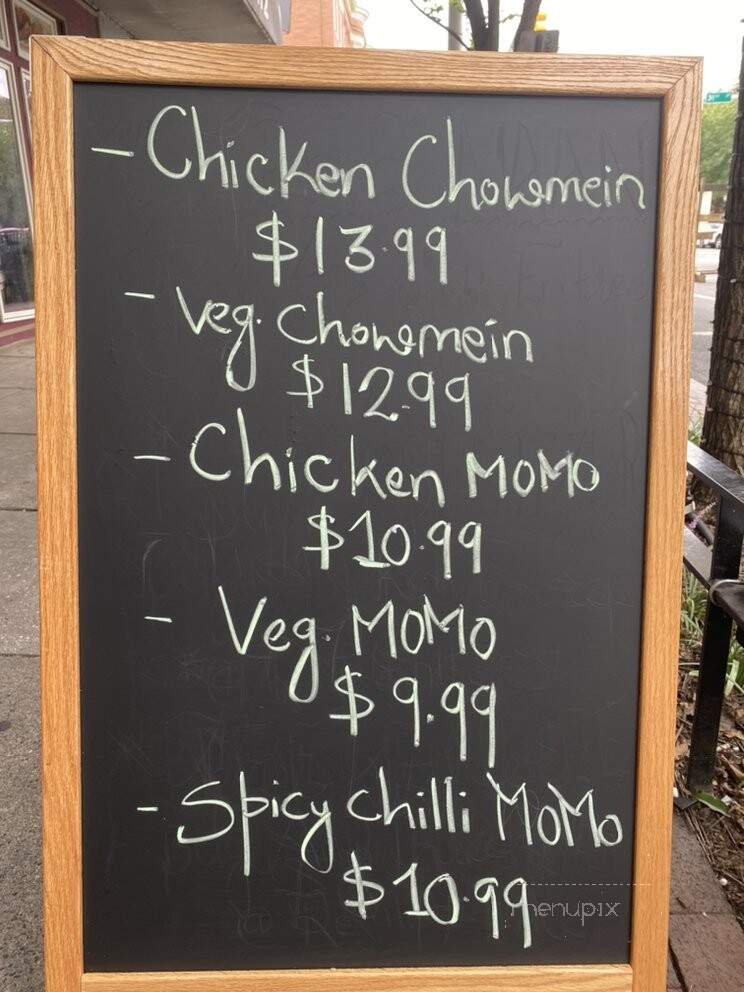 - Chicken Chowmein
$13.99
- Veg. Chowmein
$12.99
- Chicken MoMo
$10.99
- Veg. MoMo
$9.99
- Spicy Chilli MoMo
$10.99
menupix